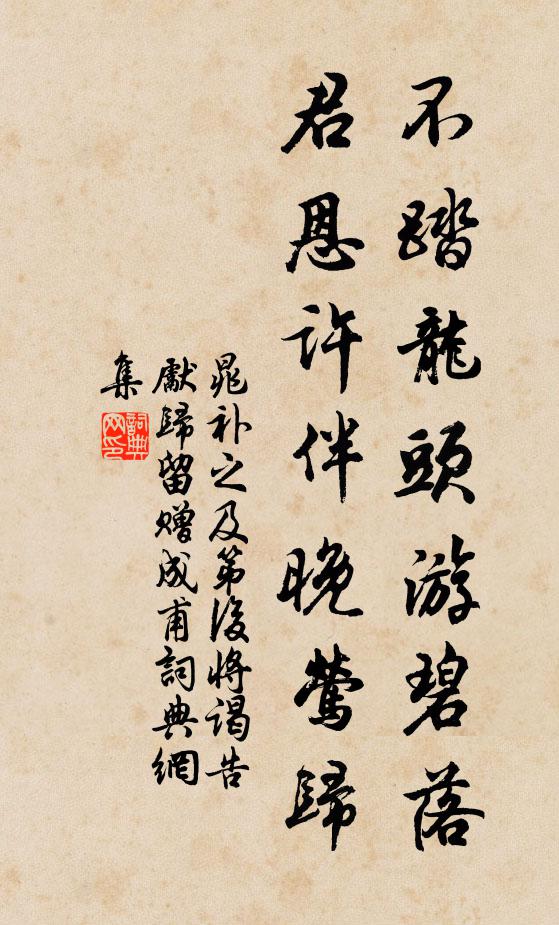 不踏龍頭游碧落
君恩許伴晚鶯歸
晁补之及第後将謁告
獻歸留贈成甫詞典網
集
詞典网印